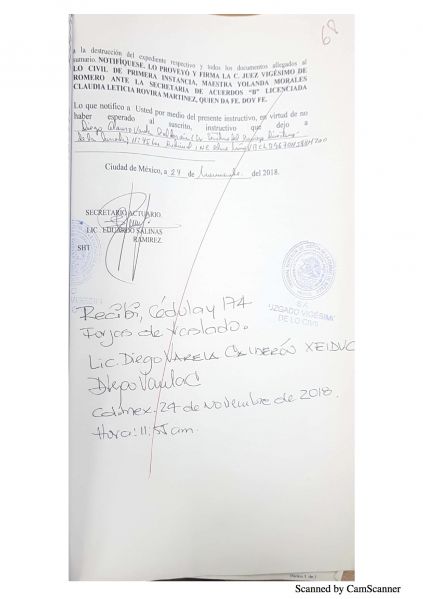 68
a la destrucción del expediente respectivo y todos los documentos allegados al
sumario. NOTIFÍQUESE, LO PROVEYÓ Y FIRMA LA C. JUEZ VIGÉSIMO DE
LO CIVIL DE PRIMERA INSTANCIA, MAESTRA YOLANDA MORALES
ROMERO ANTE LA SECRETARIA DE ACUERDOS "B" LICENCIADA
CLAUDIA LETICIA ROVIRA MARTINEZ, QUIEN DA FE. DOY FE.
Lo que notifico a Usted por medio del presente instructivo, en virtud de no
haber esperado al suscrito, instructivo que dejo a
Diego Varela Calderón
11:45
Ciudad de México, a 24 de Noviembre del 2018.
SECRETARIO ACTUARIO.
LIC. EDUARDO SALINAS
RAMIREZ.
SHT
S.A.
JUZGADO VIGÉSIMO
DE LO CIVIL
Recibí, Cédula y 174
Forjas de traslado.
Lic. Diego VARELA CALDERÓN XEIDUC
Diego Varela C
Cdmex. 24 de Noviembre de 2018.
Hora: 11:55 am.
Scanned by CamScanner